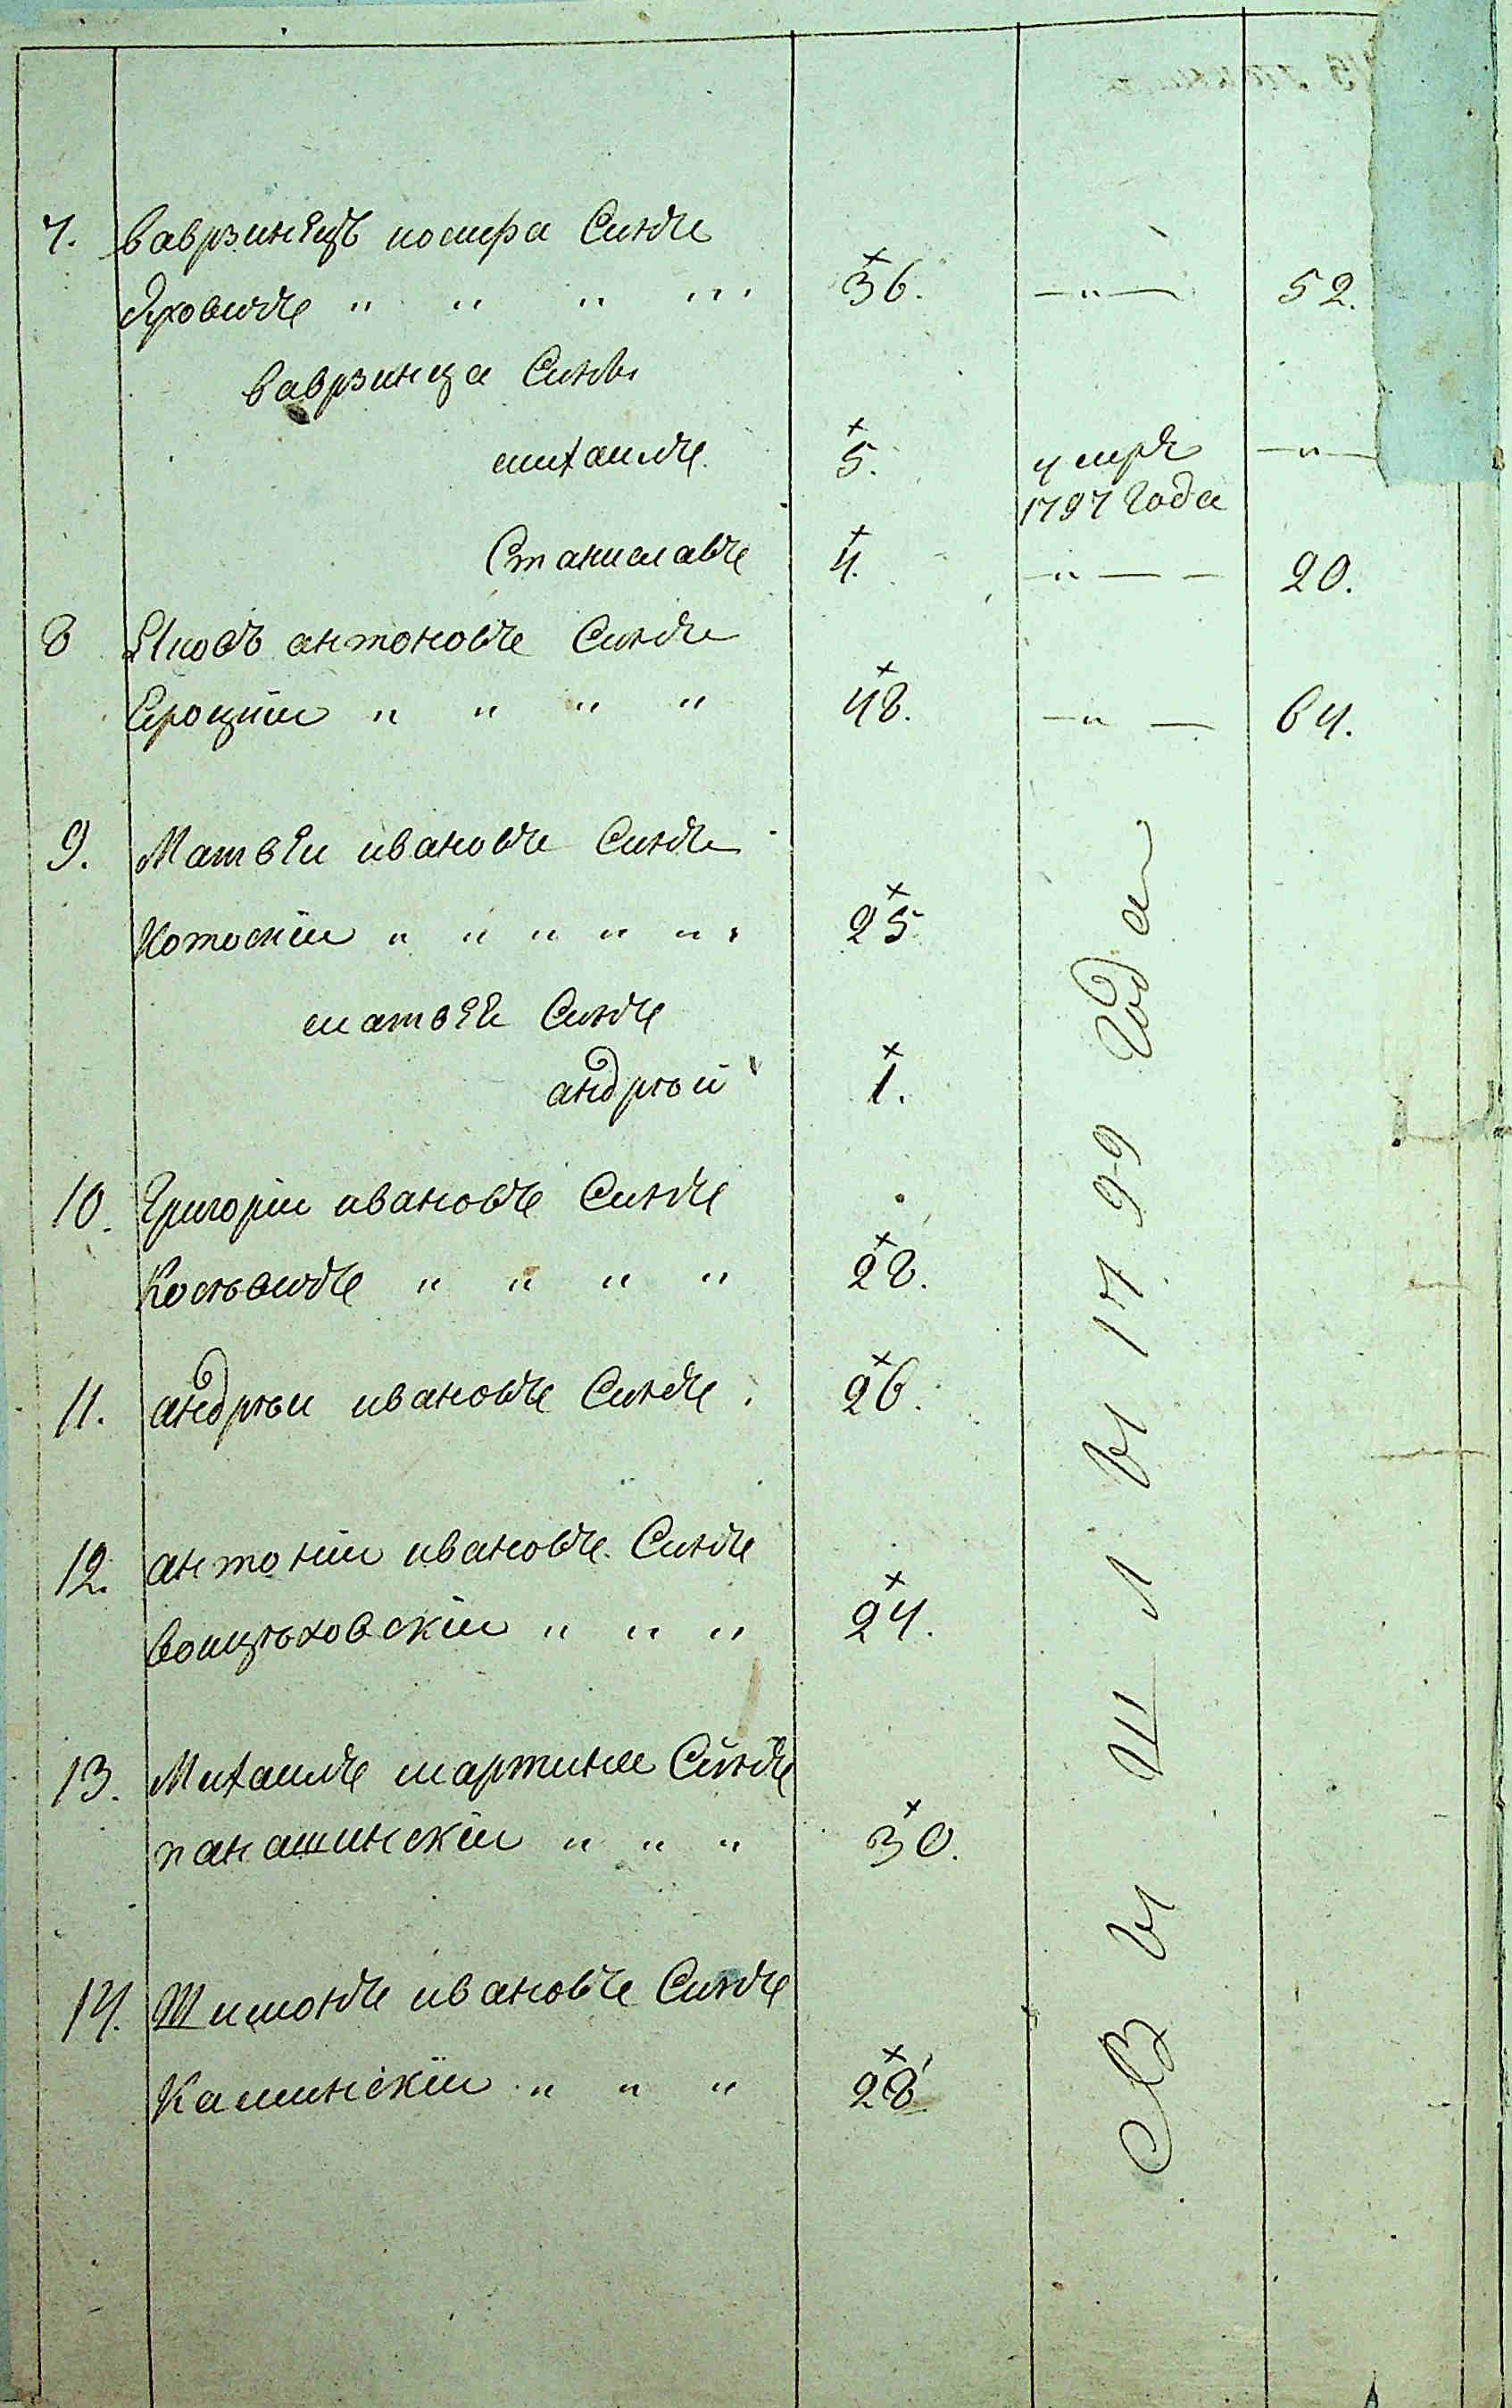 7. ваврзинецъ иосифа Сынъ
Яховичъ " " " " 36. —"— 52.
ваврзинца Сыны
михаилъ 5. умре —"—
1797 года
Станиславъ 4. —"— — 20.
8 Яковъ антоновъ Сынъ
Ероцкии " " " " 48. —"— 64.
9. Матвеи ивановъ Сынъ
Котоскiи " " " " " 25
матвея Сынъ
андрѣй 1.
10. Григорiи ивановъ Сынъ
Костѣвичъ " " " " 28.
11. андрѣи ивановъ Сынъ 26.
12. антонiи ивановъ Сынъ
воицѣховскiи " " " 24.
13. Михаилъ мартина Сынъ
панашинскiи " " " 30.
14. Шимонъ ивановъ Сынъ
Каминскiи " " " 28
Свышлы 1799 Года